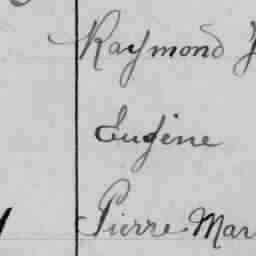 Raymond
Eugène
Pierre Mar